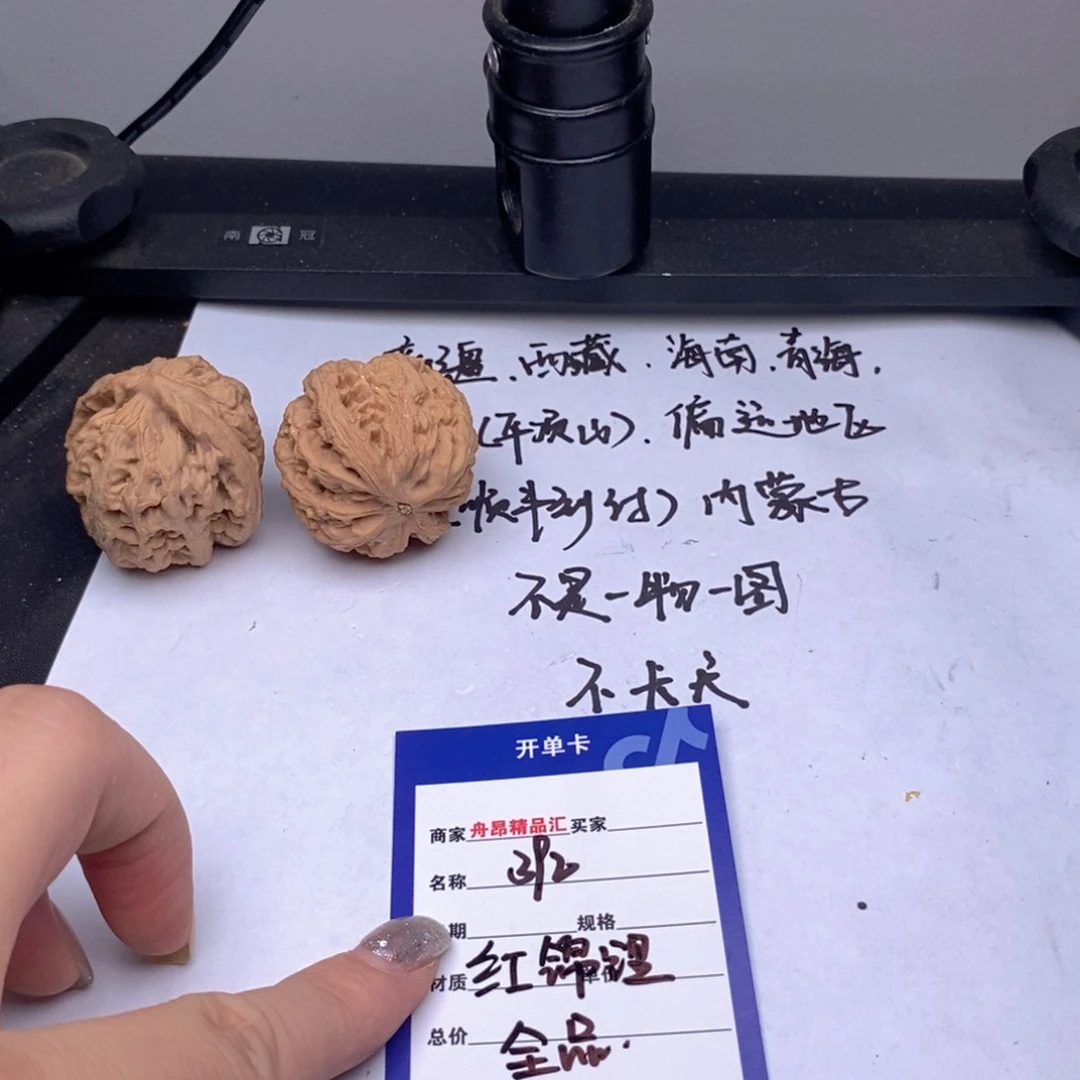 南 冠
疆、西藏、海南、青海、
偏远地区
到付）内蒙古
不是一物一图
不卡天
开单卡
商家 舟昂精品汇 买家
名称
期 规格
材质 红锦
总价 全品.